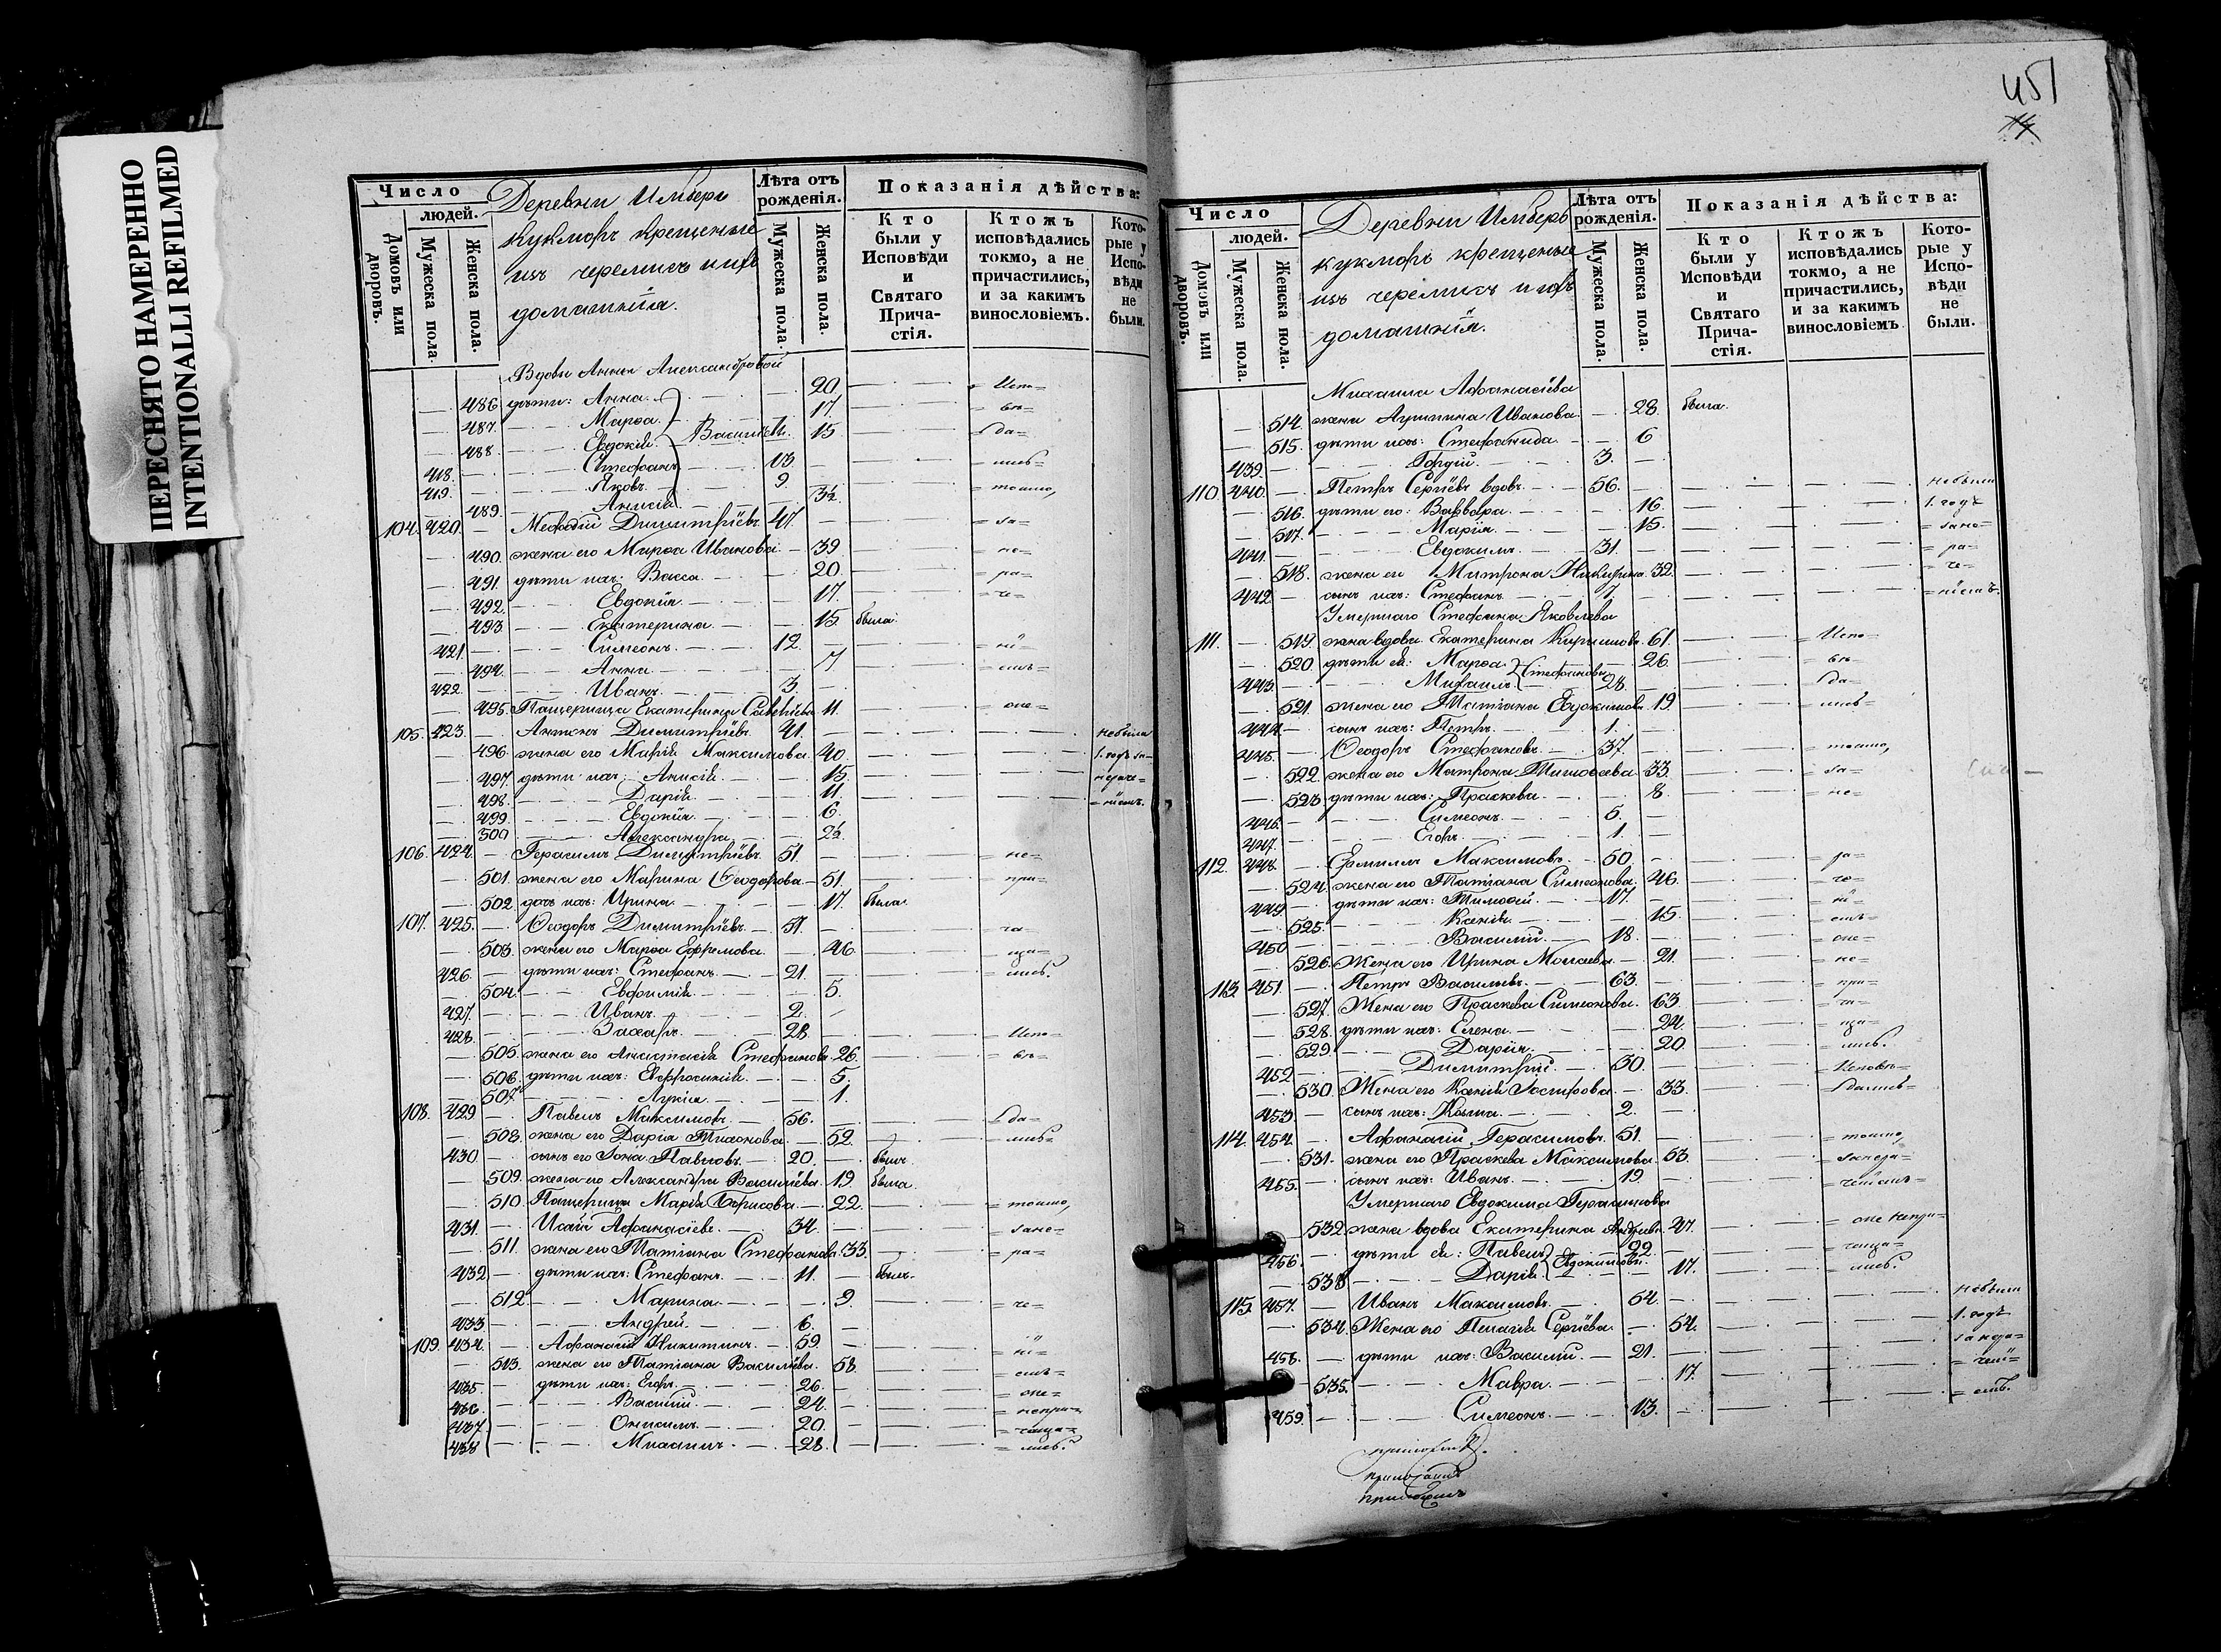 ПЕРЕСНЯТО НАМЕРЕННО
INTENTIONALLI REFILMED
Число
людей.
Домовъ или дворовъ.
Мужеска пола.
Женска пола.
Деревни Имберь
Кукморъ крещеные
изъ черемисъ и ихъ
домашнія.
Лѣта отъ рожденія.
Мужеска пола.
Женска пола.
Показанія дѣйства:
Кто были у Исповѣди и Святаго Прича-стія.
Ктожъ исповѣдались токмо, а не причастились, и за какимъ винословіемъ.
Кото-рые у Испо-вѣди не были.
Вдовы Анны Александровой
486 дѣти: Анна 20 Испо=
487. Марѳа 17. =вѣ=
488 Евдокія Васильевы. 15 =да=
418. Стефанъ 13. =лись=
419. Яковъ 9.
489. Анисія 3½ =токмо,
104. 420. Меѳодій Димитріевъ 47. =за=
490. жена его Марѳа Иванова 39 =не=
491. дѣти ихъ: Васса 20. =ра=
492. Евдокія 17. =че=
493. Екатерина 15 была.
421. Симеонъ 12. =ні=
494. Анна 7 =емъ=
422. Иванъ 3.
495. Пащерица Екатерина Савельева 11. =оне=
105. 423. Антонъ Димитріевъ 41. небыли
496. жена его Марія Максимова 40 1. годъ за=
497. дѣти ихъ: Анисія 15 нераче=
498. Дарія 11. =ніемъ.
499. Евдокія 6.
500 Александра 2½
106. 424. Герасимъ Димитріевъ 51. =не=
501. жена его Марина Ѳеодорова 51. =при=
502. дочь ихъ: Ирина 17. была.
107. 425. Ѳеодоръ Димитріевъ 51. =ча=
503. жена его Марѳа Ефимова 46. =ща=
426. дѣти ихъ: Стефанъ 21. =лись.
504. Евфимія 5.
427. Иванъ 2.
428. Захаръ 28 Испо=
505. жена его Анастасія Стефанова 26. =вѣ=
506. дѣти ихъ: Евфросинія 5.
507. Лукія 1.
108. 429 Павелъ Максимовъ 56. =да=
508. жена его Дарія Тихонова 52. =лись=
430. сынъ его Іона Павловъ 20. былъ
509. жена его Александра Васильева 19. была
510. Пащерица Марія Борисова 22. =токмо,
431. Исай Афанасіевъ 34. =зане=
511. жена его Татіана Стефанова 33. =ра=
432 дѣти ихъ: Стефанъ 11. былъ.
512 Марина 9. =че=
433. Андрей 6.
109. 434. Афанасій Никитинъ 59. =ні=
513. жена его Татіана Васильева 58. =емъ=
435. дѣти ихъ: Егоръ 26. =оне=
436. Василій 24. =непри=
437. Онисимъ 20. =чаща=
438 Михаилъ 28. =лись.
451
Число
людей.
Домовъ или дворовъ.
Мужеска пола.
Женска пола.
Деревни Имберь
кукморъ крещеные
изъ черемисъ и ихъ
домашнія.
Лѣта отъ рожденія.
Мужеска пола.
Женска пола.
Показанія дѣйства:
Кто были у Исповѣди и Святаго Прича-стія.
Ктожъ исповѣдались токмо, а не причастились, и за какимъ винословіемъ
Кото-рые у Испо-вѣди не были.
Михаила Афанасіева
514. жена Ирина Иванова 28. была.
515. дѣти ихъ: Стефанида 6
439 Гордій 3.
110. 440. Петръ Сергіевъ вдовъ 56. небыли
516. дѣти его: Варвара 16. 1. годъ
517. Марія 15. =зане=
441. Евдокимъ 31. =ра=
518. жена его Матрона 32. =че=
442. сынъ ихъ: Стефанъ 7. =ніемъ.
Умершаго Стефана Яковлева
111. 519. жена вдова Екатерина Кирилова 61. Испо=
520. дѣти ея: Марѳа Стефановы 26. =вѣ=
443. Михаилъ 28. =да=
521. жена его Татіана Евдокимова 19. =лись=
444. сынъ ихъ: Петръ 1.
445. Ѳеодоръ Стефановъ 37. =токмо,
522. жена его Матрона Тимоѳеева 33. =за=
523. дѣти ихъ: Праскева 8. =не=
446. Симеонъ 5.
447. Егоръ 1.
112. 448. Ермилъ Максимовъ 50. =ра=
524. жена его Татіана Симеонова 46. =че=
449. дѣти ихъ: Тимоѳей 17. =ні=
525. Ксенія 15. =емъ=
450 Василій 18. =оне=
526. Жена его Ирина Моисеева 21. =не=
113 451. Петръ Васильевъ 63. =при=
527. Жена его Праскева Симеонова 63. =ча=
528. дѣти ихъ: Елена 24. =ща=
529 Дарія 20. =лись.
452 Димитрій 30. Исповѣ=
530. Жена его Ксенія 33. =дались=
453. сынъ ихъ: Козма 2.
114. 454. Афанасій Герасимовъ 51. =токмо,
531. жена его Праскева Максимова 53. =занера=
455. сынъ ихъ: Иванъ 19. =ченіемъ=
Умершаго Евдокима Герасимова
532. жена вдова Екатерина Андреева 47.
456. дѣти ея: Павелъ Евдокимовы 22. =чаща=
533 Дарія 17. =лись.
115 457. Иванъ Максимовъ 54. небыли
534. Жена его Пелагія Сергіева 54. 1. годъ
458. дѣти ихъ: Василій 21.
535. Мавра 17.
459. Симеонъ 13. =емъ.